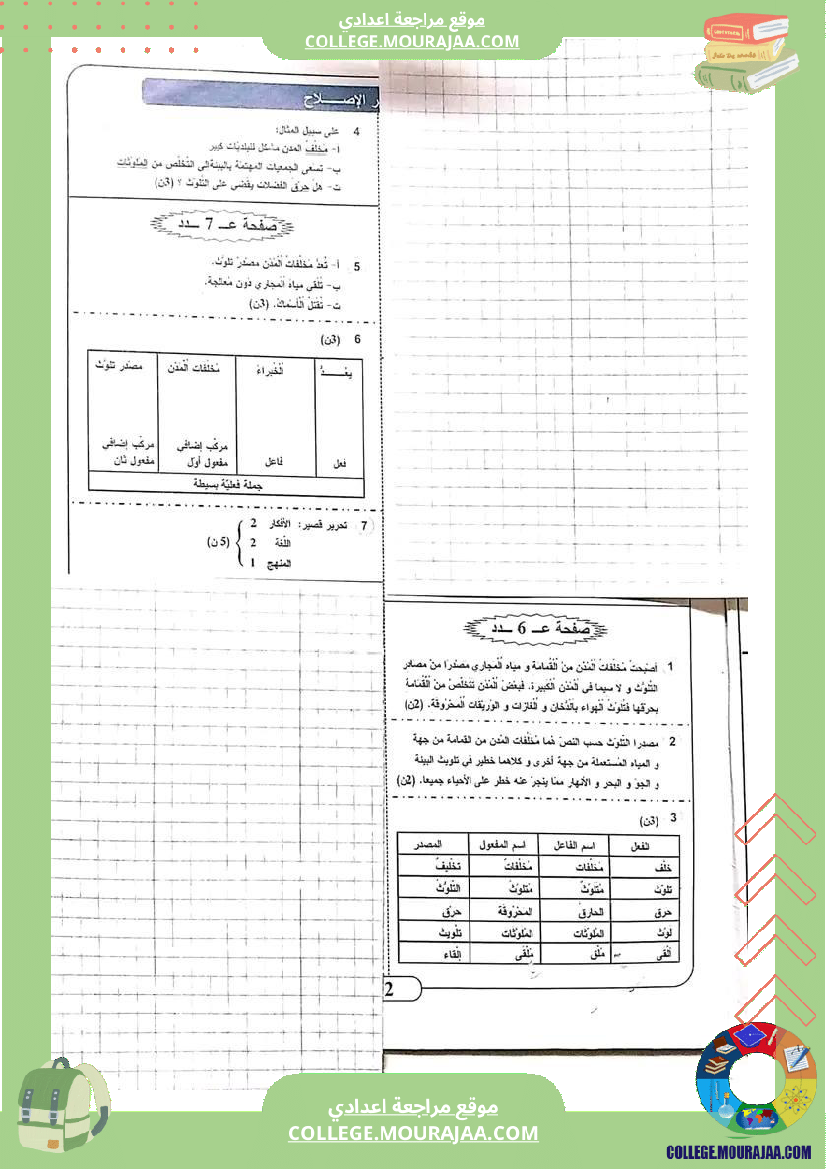 موقع مراجعة اعدادي
COLLEGE.MOURAJAA.COM
ر الإصـــلاح
4 على سبيل المثال:
أ- مُخلّفُ المدن مشكل للبلديّات كبير
ب- تسعى الجمعيات المهتمّة بالبيئة إلى التّخلّص من المُلوّثات
ت- هلْ حرْق الفضلات يقْضي على التّلوّث ؟ (3ن)
صفحة عـــ 7 ـــدد
5 أ- تُعدُّ مُخلّفاتُ الْمُدُن مصْدرَ تلوّث.
ب- تُلْقى مياه المجاري دُون مُعالجة.
ت- تُقْتلُ الْأسْماكُ. (3ن)
6 (3ن)
يعُـــــدُّ الْخُبراءُ مُخلّفات الْمُدُن مصْدر تلوّث
مركّب إضافي مركّب إضافي
فعل فاعل مفعول أوّل مفعول ثان
جملة فعليّة بسيطة
7 تحرير قصير: الأفكار 2
اللّغة 2 (5ن)
المنهج 1
صفحة عـــ 6 ـــدد
1 أصْبحتْ مُخلّفاتُ الْمُدُن منْ الْقُمامة و مياه الْمجاري مصْدرًا منْ مصادر
التّلوُّث و لا سيما في الْمُدُن الْكبيرة. فبعْضُ الْمُدُن تتخلّصُ منْ الْقُمامة
بحرْقها فتُلوّثُ الْهواء بالدُّخان و الْغازات و الْوريْقات الْمحْرُوقة. (2ن)
2 مصدرا التّلوّث حسب النصّ هُما مُخلّفات المُدن من القمامة من جهة
و المياه المُستعملة من جهة أخرى و كلاهما خطير في تلويث البيئة
و الجوّ و البحر و الأنهار ممّا ينجرّ عنه خطر على الأحياء جميعا. (2ن)
3 (3ن)
الفعل اسم الفاعل اسم المفعول المصدر
خلّف مُخلّفات مُخلّفاتٌ تخليفٌ
تلوّث مُتلوّثٌ مُتلوّثٌ التّلوُّثُ
حرق الحارقُ المحْرُوقة حرْق
لوّث المُلوّثات المُلوّثات تلْويث
ألْقى مُلْقٍ مُلْقًى إلْقاء
2
موقع مراجعة اعدادي
COLLEGE.MOURAJAA.COM
COLLEGE.MOURAJAA.COM